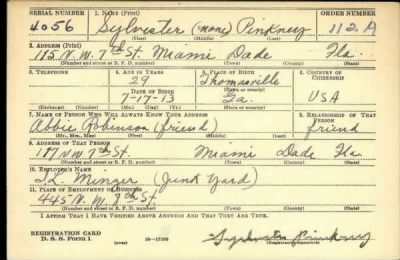 SERIAL NUMBER 1. NAME (Print) ORDER NUMBER
4056 Sylvester (none) Pinkney 112 A
(First) (Middle) (Last)
2. ADDRESS (Print)
115 N.W. 7th St Miami Dade Fla.
(Number and street or R. F. D. number) (Town) (County) (State)
3. TELEPHONE 4. AGE IN YEARS 5. PLACE OF BIRTH 6. COUNTRY OF CITIZENSHIP
29 Thomasville
DATE OF BIRTH (Town or county)
7-17-13 Ga. USA
(Exchange) (Number) (Mo.) (Day) (Yr.) (State or country)
7. NAME OF PERSON WHO WILL ALWAYS KNOW YOUR ADDRESS 8. RELATIONSHIP OF THAT PERSON
Abbie Robinson (friend) friend
(Mr., Mrs., Miss) (First) (Middle) (Last)
9. ADDRESS OF THAT PERSON
117 NW 7th St. Miami Dade Fla.
(Number and street or R. F. D. number) (Town) (County) (State)
10. EMPLOYER'S NAME
Minzer (Junk Yard)
11. PLACE OF EMPLOYMENT OR BUSINESS
445 N.W. 8th St.
(Number and street or R. F. D. number) (Town) (County) (State)
I AFFIRM THAT I HAVE VERIFIED ABOVE ANSWERS AND THAT THEY ARE TRUE.
REGISTRATION CARD
D. S. S. Form 1 (over) 16-17105 Sylvester Pinkney